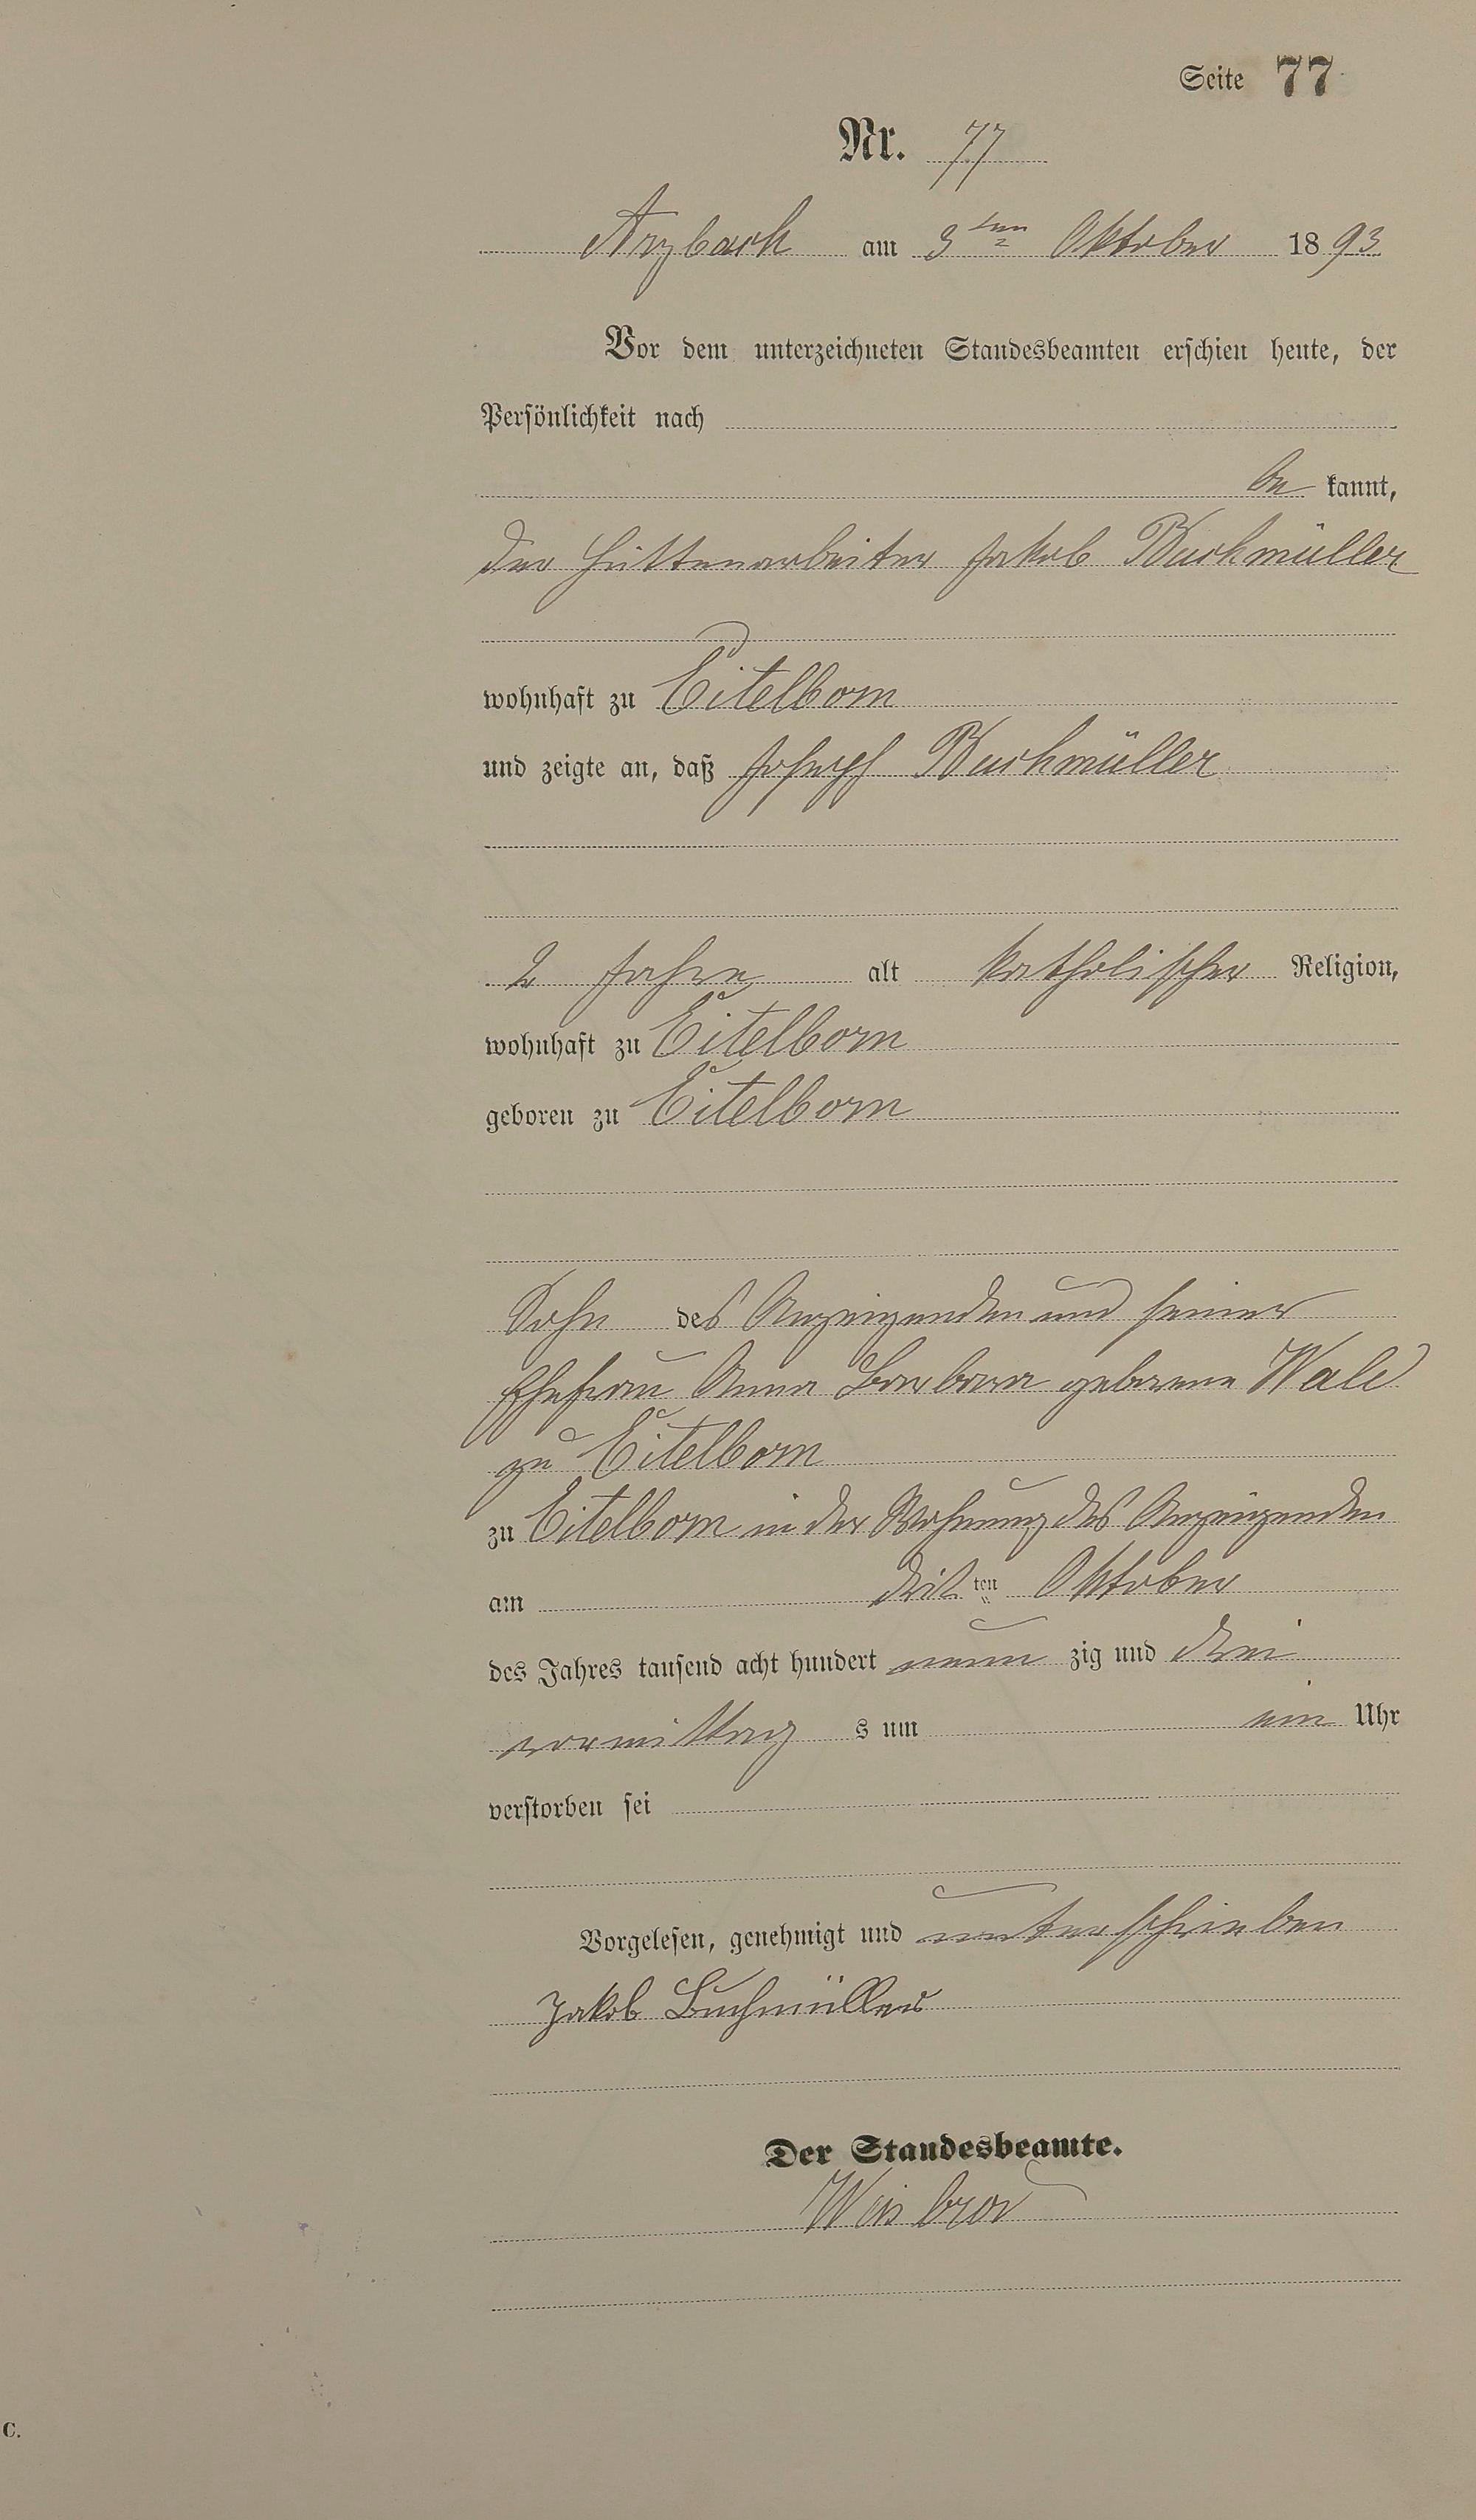 Seite 77
Nr. 77
Arzbach am 3ten Oktober 1893
Vor dem unterzeichneten Standesbeamten erschien heute, der
Persönlichkeit nach
be kannt,
der Hüttenarbeiter Jakob Buchmüller
wohnhaft zu Eitelborn
und zeigte an, daß Joseph Buchmüller
2 Jahre alt katholischer Religion,
wohnhaft zu Eitelborn
geboren zu Eitelborn
Sohn des Anzeigenden und seiner
Ehefrau Anna Barbara geborene Wald
zu Eitelborn
zu Eitelborn in der Wohnung des Anzeigenden
am drit ten Oktober
des Jahres tausend acht hundert neun zig und drei
vormittag s um ein Uhr
verstorben sei
Vorgelesen, genehmigt und unterschrieben
Jakob Buchmüller
Der Standesbeamte.
Weisbrod
C.